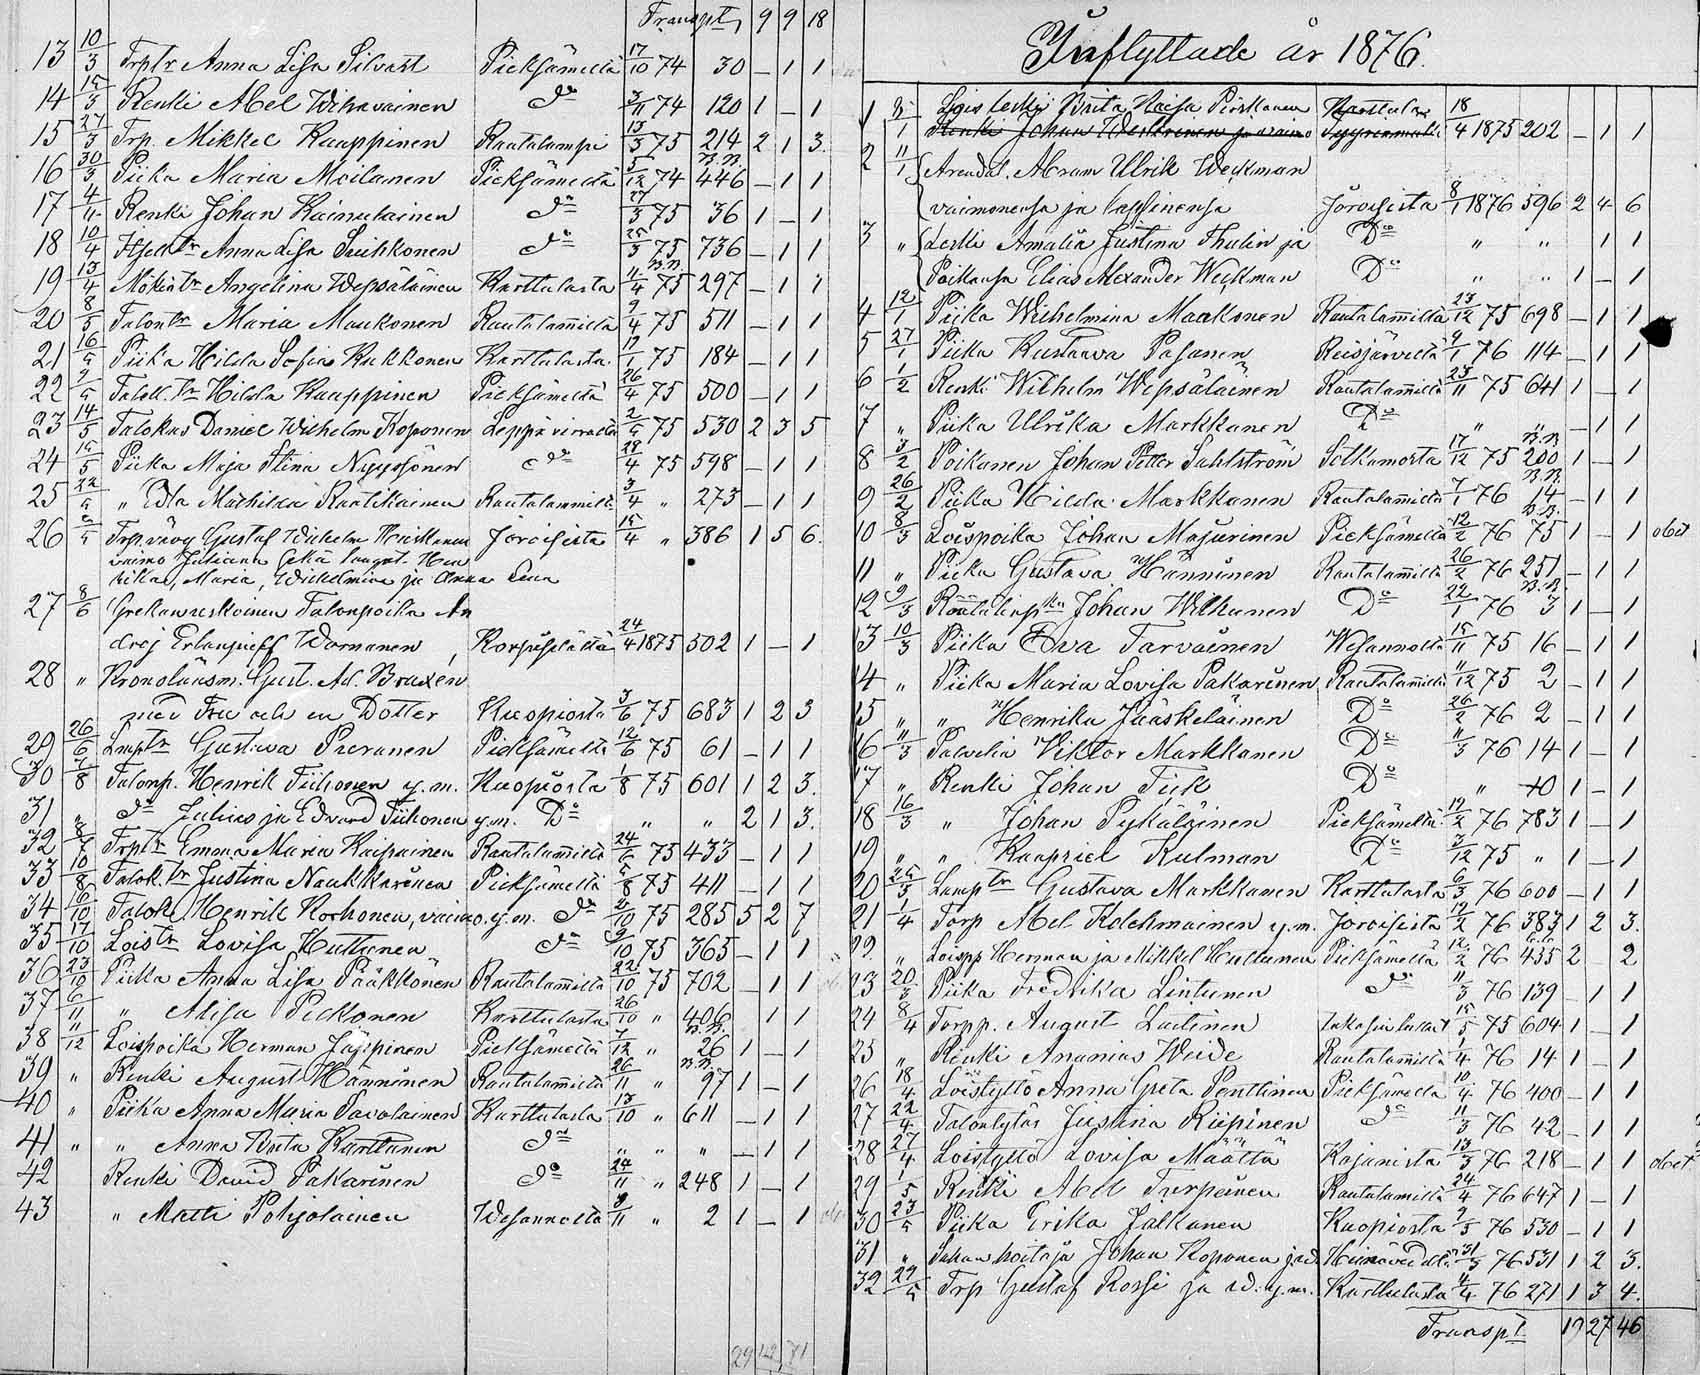 Transpt 9 9 18
13 10/3 Trptr Anna Lisa Silvast Pieksämeltä 17/10 74 30 – 1 1
14 15/3 Renki Abel Wihavainen do 3/11 74 120 1 – 1
15 27/3 Trp. Mikkel Kauppinen Rautalampi 13/3 75 214 2 1 3.
16 30/3 Piika Maria Moilanen Pieksämeltä 5/12 74 446 – 1 1
17 4/4 Renki Johan Kainulainen do 27/3 75 36 1 – 1
18 10/4 Itsell.tr Anna Lisa Suihkonen do 25/3 75 736 – 1 1
19 13/4 Mökintr Angelina Wepsäläinen Karttulasta 11/4 75 297 – 1 1
20 8/5 Talontr Maria Maukonen Rautalammilta 9/4 75 511 – 1 1
21 16/5 Piika Hilda Sofia Kukkonen Karttulasta 17/1 75 184 – 1 1
22 Talok.tr Hilda Kauppinen Pieksämeltä 26/4 75 500 – 1 1
23 14/5 Talokas Daniel Wilhelm Koponen Leppävirralta 2/5 75 530 2 3 5
24 15/5 Piika Maja Stina Nyyssönen do 28/4 75 598 – 1 1
25 22/5 " Eda Mathilda Rautiainen Rautalammilta 3/4 " 273 – 1 1
26 Trp.vävy Gustaf Wilhelm Heiskanen Joroisista 15/4 " 386 1 5 6.
vaimo Juliana sekä laapset Hen
rika, Maria, Wilhelmina ja Anna Lena
27 8/6 Grekanuskoinen Talonpoika An
drej Erlanpieff Wornanen Korpiselältä 24/4 1875 502 1 – 1
28 " Kronolänsm. Gust. Ad. Bruxén
med Fru och en Dotter Kuopiosta 3/6 75 683 1 2 3
29 26/6 Lmptr Gustava Pieranen Pieksämeltä 12/6 75 61 – 1 1
30 7/8 Talonp. Henrik Tiihonen y.m. Kuopiosta 1/8 75 601 1 2 3.
31 " do Julius ja Edvard Tiihonen y.m. Do " " 2 1 3.
32 8/7 Trptr Emma Maria Kaipainen Rautalammilta 24/6 75 433 – 1 1
33 10/8 Talok.tr Justina Naukkarinen Pieksämeltä 5/8 75 411 – 1 1
34 16/10 Talok. Henrik Korhonen, vaimo y.m. do 2/10 75 285 5 2 7
35 17/10 Loistr Lovisa Huttunen do 9/10 75 365 – 1 1
36 23/10 Piika Anna Lisa Pääkkönen Rautalammilta 22/10 75 702 – 1 1
37 6/11 " Alisa Piekonen Karttulasta 26/10 " 406 1 1
38 11/12 Loispoika Herman Jäppinen Pieksämeltä 7/12 " 26 1 – 1
39 " Renki August Hänninen Rautalammilta 26/11 " 97 1 – 1
40 " Piika Anna Maria Savolainen Karttulasta 13/10 " 611 – 1 1
41 " " Anna Brita Karttunen do " " " – 1 1
42 Renki David Pakarinen do 24/11 " 248 1 – 1
43 " Matti Pohjolainen Wesannolta 9/11 " 2 1 – 1
29 42 71
Inflyttade år 1876.
1 Loisleski Brita Kaisa Piiskanen Karttula 18/4 1875 202 – 1 1
Renki Johan Westerinen ja vaimo
2 11/1 Arendat. Abram Ulrik Weckman
vaimonensa ja lapsinensa Joroisista 8/1 1876 596 2 4 6
3 " Leski Amalia Justina Thulin ja Do " " 1 1
Poikansa Elias Alexander Weckman Do " " 1 – 1
4 12/1 Piika Wilhelmina Maukonen Rautalammilta 23/12 75 698 – 1 1
5 27/1 Piika Kustaava Pasanen Reisjärveltä 4/1 76 114 – 1 1
6 1/2 Renki Wilhelm Wepsäläinen Rautalammilta 23/11 75 641 1 – 1
7 " Piika Ulrika Markkanen Do " " – 1 1
8 3/2 Poikanen Johan Petter Sahlström Sotkamosta 17/12 75 200 1 – 1
9 26/2 Piika Hilda Markkanen Rautalammilta 7/1 76 14 – 1 1
10 8/3 Loispoika Johan Majurinen Pieksämeltä 12/2 76 75 1 – 1 obit
11 " Piika Gustava Hänninen Rautalammilta 26/2 76 251 – 1 1
12 9/3 Johan Wilhunen Do 22/1 76 3 1 – 1
13 10/3 Piika Eva Tarvainen Wesannolta 15/11 75 16 – 1 1
14 " Piika Maria Lovisa Pakarinen Rautalammilta 11/12 75 2 – 1 1
15 " " Henrika Jääskeläinen Do 26/2 76 2 – 1 1
16 11/3 Palvelia Viktor Markkanen Do 11/3 76 14 1 – 1
17 " Renki Johan Tiik Do " 40 1 – 1
18 16/3 " Johan Pykäläinen Pieksämeltä 19/2 76 783 1 – 1
19 " " Kaapriel Kulman Do 3/12 75 " 1 – 1
20 25/3 Lamptr Gustava Markkanen Karttulasta 6/3 76 600 – 1 1
21 1/4 Torp Abel Kolehmainen y.m. Joroisista 19/2 76 383 1 2 3.
22. " Loispp Herman ja Mikkel Huttunen Pieksämeltä 12/2 76 455 2 – 2
23 20/3 Piika Fredrika Lintunen do 11/3 76 139 – 1 1
24 8/4 Torpp. August Laitinen 15/5 75 604 1 – 1
25 " Renki Ananias Weide Rautalammilta 1/4 76 14 1 – 1
26 18/4 Loistyttö Anna Greta Penttinen Pieksämeltä 10/4 76 400 – 1 1
27 22/4 Talontytär Justina Riipinen do 11/3 76 42 – 1 1
28 27/4 Loistyttö Lovisa Määttä Kajanista 13/3 76 218 – 1 1 obit
29 1/5 Renki Abel Turpeinen Rautalammilta 24/4 76 647 1 – 1
30 23/5 Piika Erika Jalkanen Kuopiosta 9/5 76 530 – 1 1
31 " Sahanhoitaja Johan Koponen Heinävedeltä 31/3 76 531 1 2 3.
32 29/5 Trp Gustaf Rossi ja y.m. Karttulasta 4/4 76 271 1 3 4.
Transpt 19 27 46